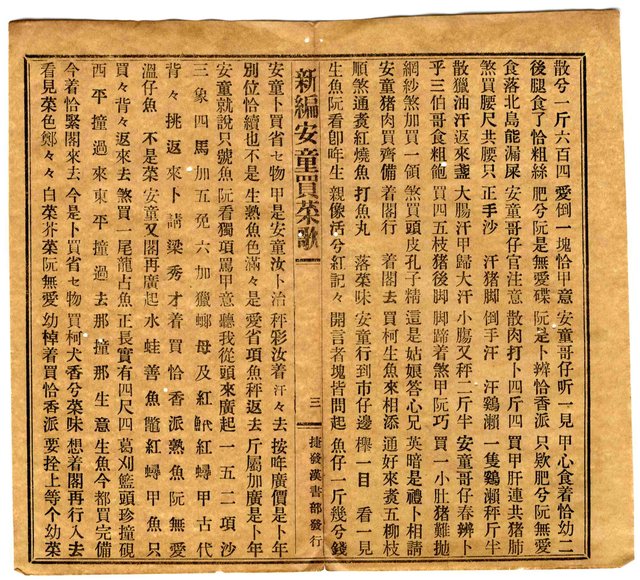 散兮一斤六百四 愛倒一塊恰甲意 安童哥仔听一見 甲心食着恰幼二
後腿食了恰粗絲 肥兮阮是無愛碟 阮是卜辨恰香派 只欵肥兮阮無愛
食落北島能漏屎 安童哥仔官注意 散肉打卜四斤四 買甲肝連共猪肺
煞買腰尺共腰只 正手沙 汗猪脚 倒手汗 汗鷄瀨 一隻鷄瀨秤斤半
散獵油汗返來盞 大腸汗甲歸大汗 小膓又秤二斤半 安童哥仔春辨卜
乎三伯哥食粗飽 買四五枝猪後脚 脚蹄着煞甲阮巧 買一小肚猪難抛
網紗煞加買一領 煞買頭皮孔子精 這是姑娘答心兄 英暗是禮卜相請
安童猪肉買齊備 着閣行 着閣去 買柯生魚來相添 通好來煑五柳枝
順煞通煑紅燒魚 打魚丸 落菜味 安童行到市仔邊 櫸一目 看一見
生魚阮看卽哖生 親像活兮紅記々 開言者塊皆問起 魚仔一斤幾兮錢
新編安童買菜歌 三 捷發漢書部發行
安童卜買省乜物 甲是安童汝卜治 秤彩汝着汗々去 按哖廣價是卜年
別位恰續也不是 生熟魚色滿々是 愛省項魚秤返去 斤屬加廣是卜年
安童就說只號魚 阮看獨項罵甲意 聽我從頭來廣起 一五二項沙
三象四馬加五免 六加獵螂母及紅 魠代紅蟳甲古代
背々挑返來卜請梁秀才 着買恰香派 熟魚阮無愛
溫仔魚 不是菜 安童又閣再廣起 水蛙善魚鼈 紅蟳甲魚只
買々背々返來去 煞買一尾龍占魚 正長實有四尺四 葛刈籃頭珍撞硯
西平撞過來 東平撞過去 那撞那生意 生魚今都買完備
今着恰緊閣來去 今是卜買省乜物 買柯犬香兮菜味 想着閣再行入去
看見菜色鄭々々 白菜芥菜阮無愛 幼棹着買恰香派 要拴上等个幼菜